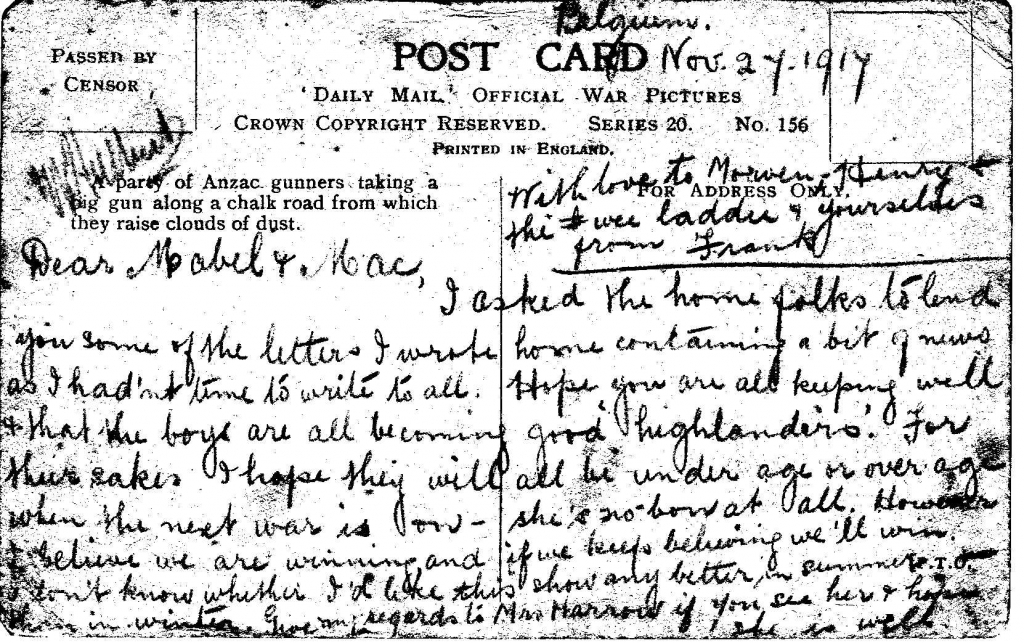 Belgium.
PASSED BY
CENSOR
POST CARD
Nov. 27. 1917
'DAILY MAIL' OFFICIAL WAR PICTURES
CROWN COPYRIGHT RESERVED. SERIES 20. No. 156
PRINTED IN ENGLAND.
A party of Anzac gunners taking a
big gun along a chalk road from which
they raise clouds of dust.
FOR ADDRESS ONLY.
With love to Morven, Henry &
the wee laddie & yourselves
from Frank
Dear Mabel & Mac,
I asked the home folks to lend
you some of the letters I wrote home containing a bit of news
as I had'nt time to write to all. Hope you are all keeping well
& that the boys are all becoming good 'highlanders'. For
their sakes I hope they will all be under age or over age
when the next war is on - she's no bon at all. However
I believe we are winning and if we keep believing we'll win.
I don't know whether I'd like this show any better in summer
P.T.O.
than in winter. Give my regards to Mrs Harrow if you see her & hope
she is well